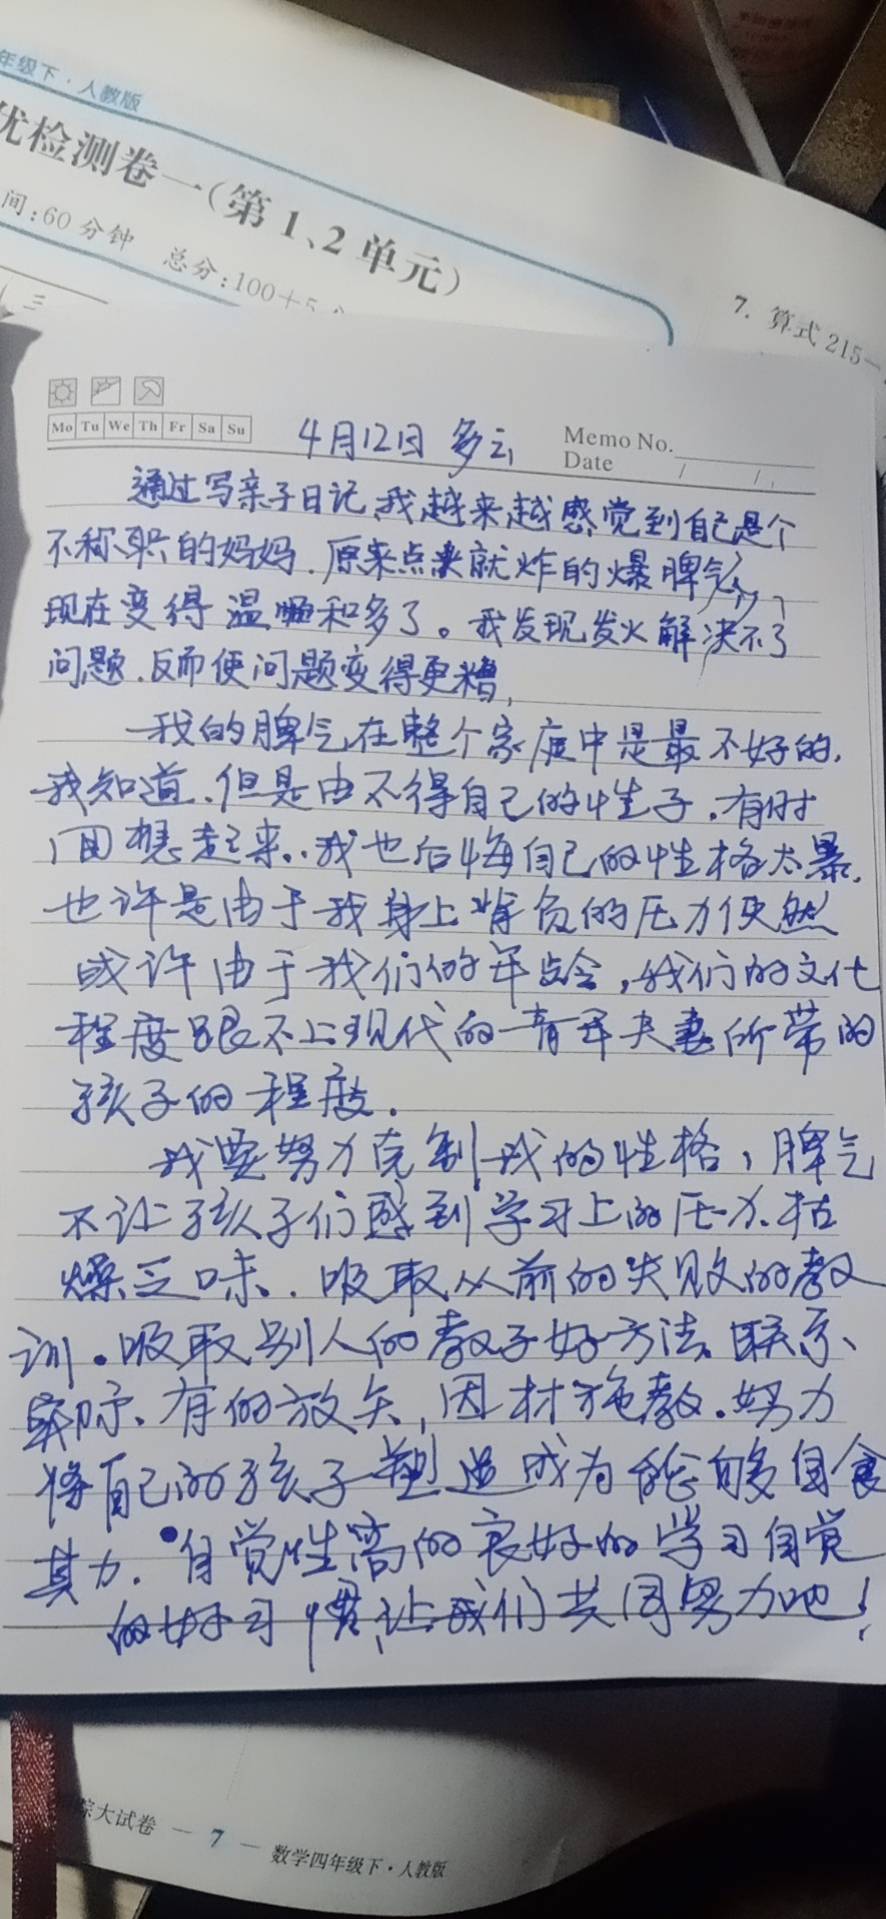 年级下·人教版
优检测卷一(第1、2单元)
间:60分钟 总分:100+5
三
7. 算式215-
Mo Tu We Th Fr Sa Su
4月12日 多云
Memo No.
Date / /
通过写亲子日记,我越来越感觉到自己是个
不称职的妈妈.原来点来就炸的爆脾气,
现在变得温顺和多了。我发现发火解决不了
问题.反而使问题变得更糟,
我的脾气在整个家庭中是最不好的,
我知道.但是由不得自己的性子.有时
回想起来..我也后悔自己的性格太暴,
也许是由于我身上背负的压力使然
或许由于我们的年龄,我们的文化
程度跟不上现代的青年夫妻所带的
孩子的程度.
我要努力克制我的性格,脾气
不让孩子们感到学习上的压力.枯
燥乏味.吸取从前的失败的教
训。吸取别人的教子好方法.联系、
实际、有的放矢,因材施教.努力
将自己的孩子塑造成为能够自食
其力.自觉性高的良好的学习自觉
的好习惯,让我们共同努力吧!
综大试卷 — 7 — 数学四年级下·人教版